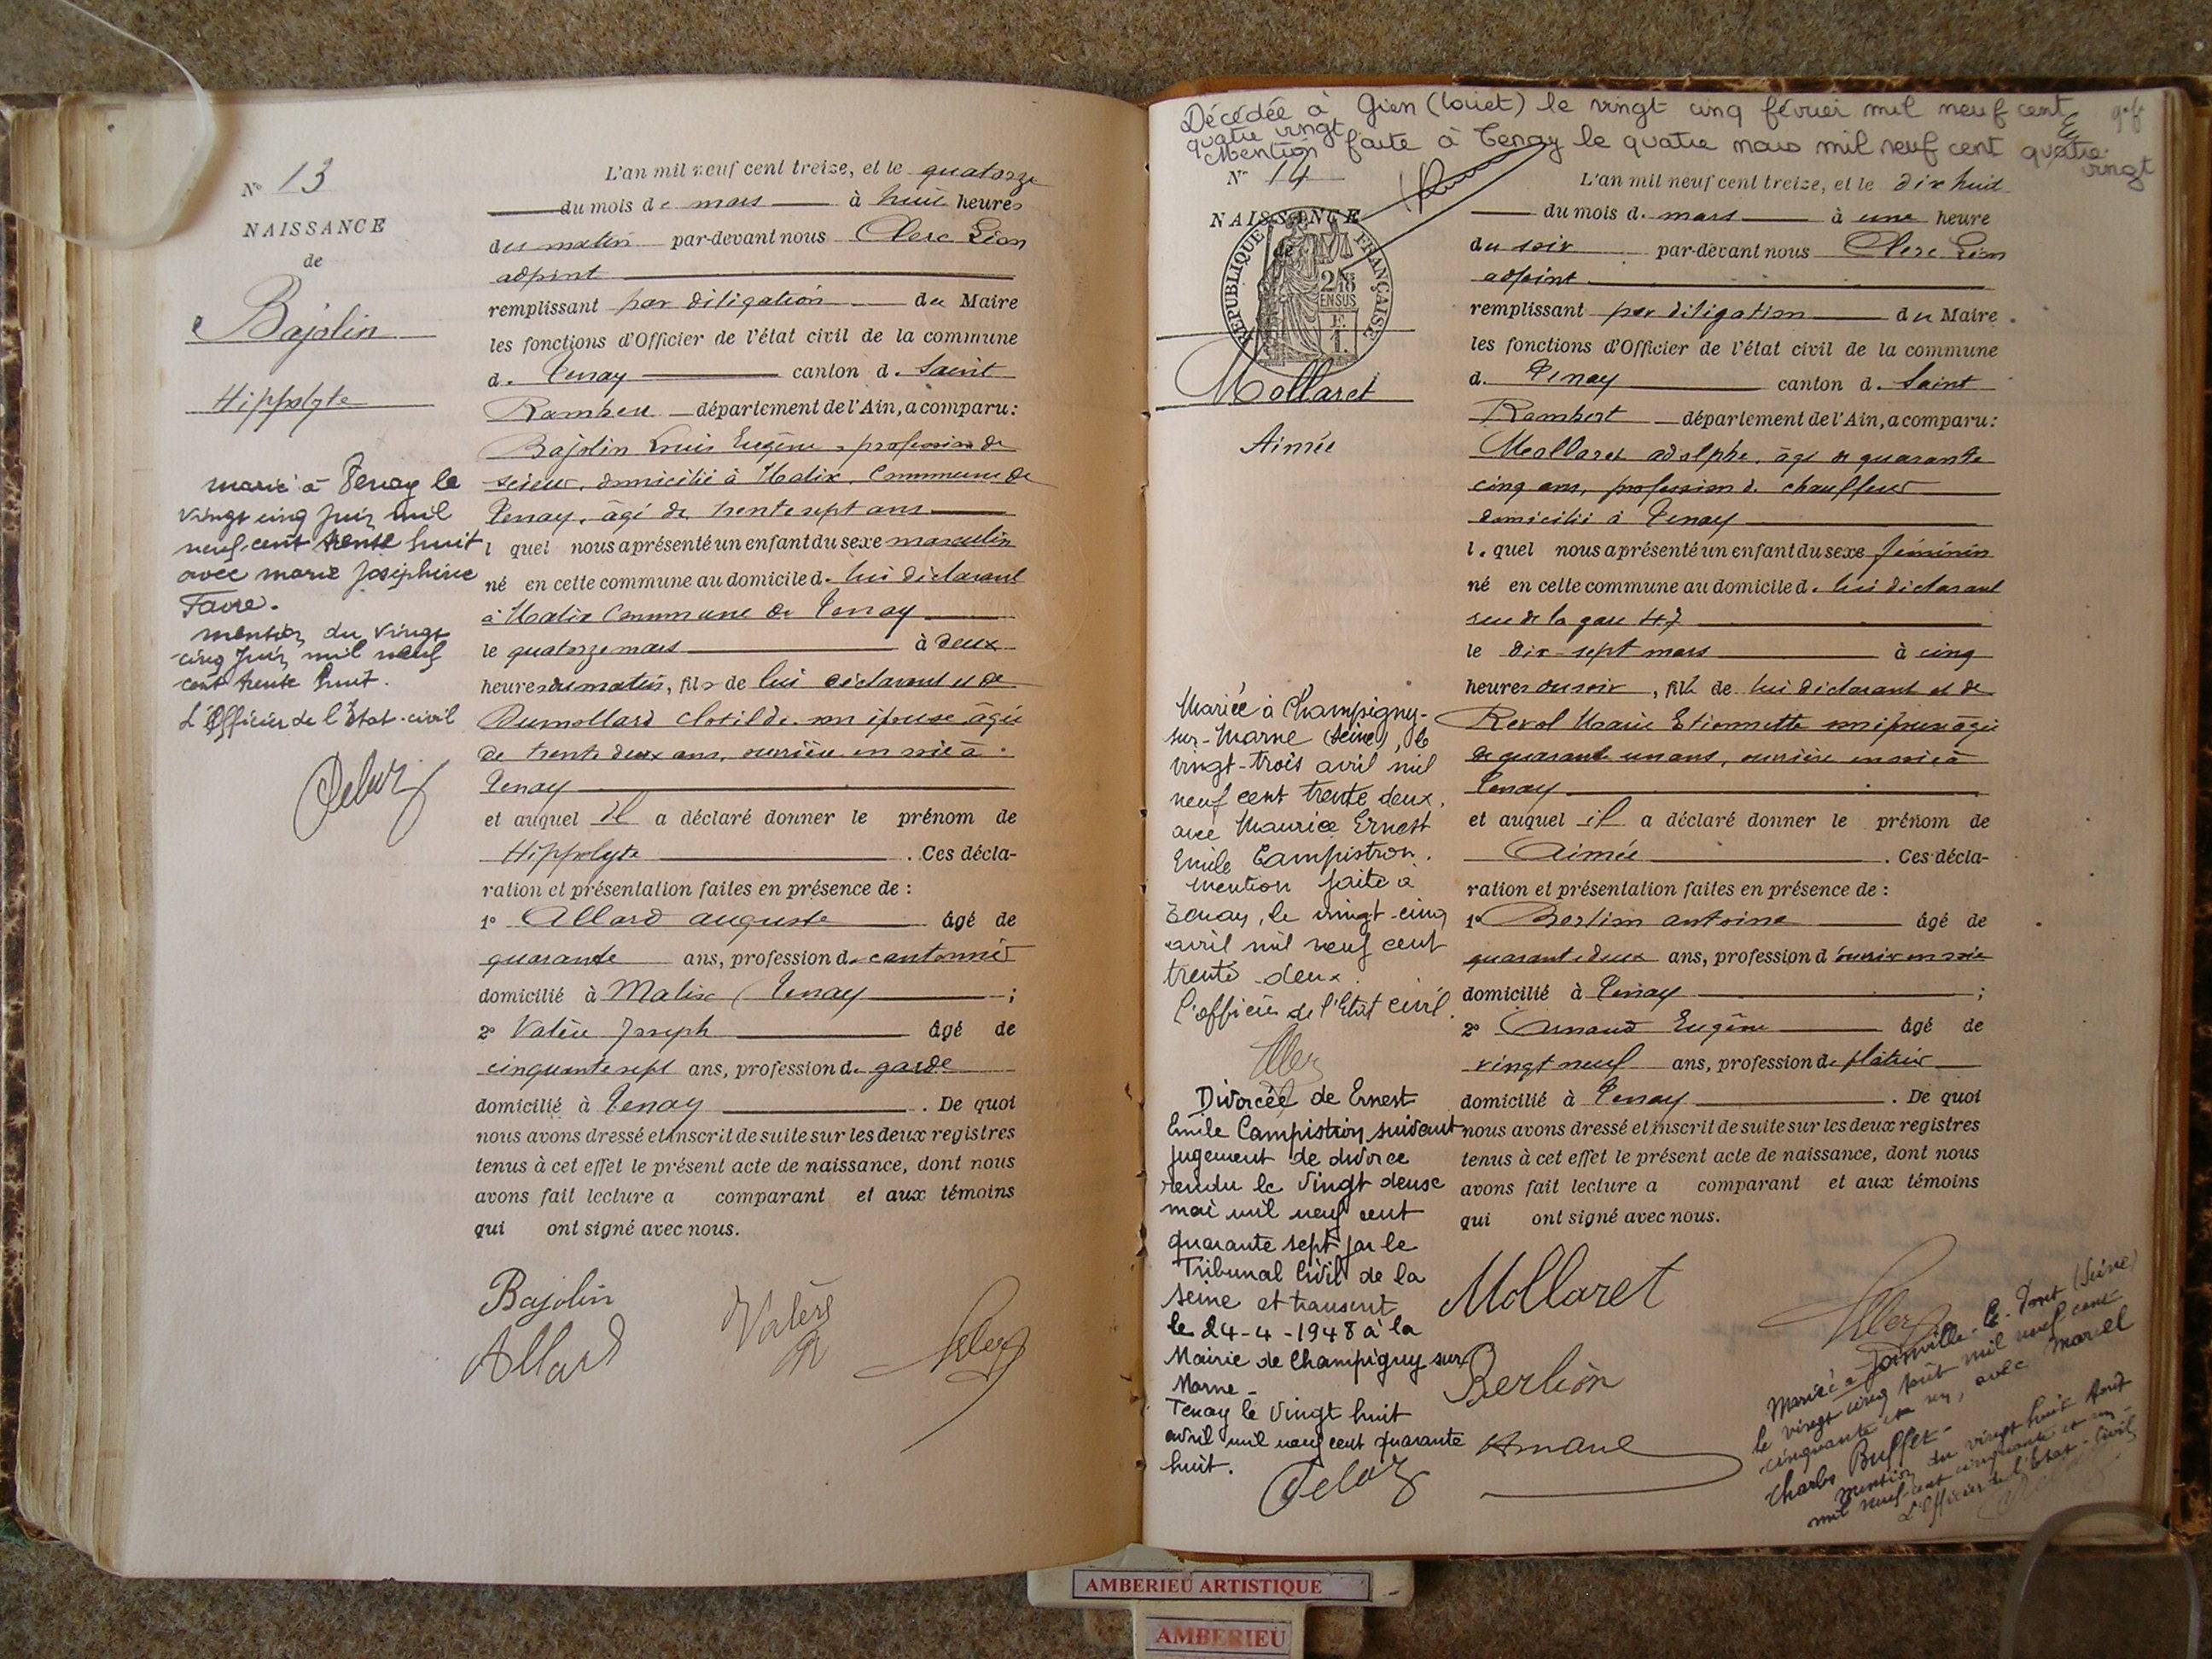 N° 13
NAISSANCE
de
Bajolin
Hippolyte
marié à Tenay le
vingt cinq Juin mil
neuf-cent trente huit
avec marie Joséphine
Favre.
mention du vingt
cinq Juin mil neuf
cent trente huit.
L'Officier de l'Etat-civil
L'an mil neuf cent treize, et le quatorze
du mois de mars à huit heures
du matin par-devant nous Clerc Léon
adjoint
remplissant par déligation du Maire
les fonctions d'Officier de l'état civil de la commune
d. Tenay canton d. Saint
Rambert département de l'Ain, a comparu:
Bajolin Louis Eugène, profession de
scieur, domicilié à Malix, Commune de
Tenay, âgé de trente sept ans
l quel nous a présenté un enfant du sexe masculin
né en cette commune au domicile d. lui déclarant
à Malix Commune de Tenay
le quatorze mars à deux
heures du matin, fils de lui déclarant et de
Dumollard Clotilde son épouse âgée
de trente deux ans, ouvrière en soie à
Tenay
et auquel il a déclaré donner le prénom de
Hippolyte. Ces décla-
ration et présentation faites en présence de :
1° Allard auguste âgé de
quarante ans, profession de cantonnier
domicilié à Malix (Tenay ;
2° Valère Joseph âgé de
cinquante sept ans, profession de garde
domicilié à Tenay. De quoi
nous avons dressé et inscrit de suite sur les deux registres
tenus à cet effet le présent acte de naissance, dont nous
avons fait lecture a comparant et aux témoins
qui ont signé avec nous.
Bajolin
Allard
Valère
Décédée à Gien (Loiret) le vingt cinq février mil neuf cent
quatre vingt
Mention faite à Tenay le quatre mars mil neuf cent quatre
vingt
N° 14
NAISSANCE
de
RÉPUBLIQUE FRANÇAISE
Mollaret
Aimée
Mariée à Champigny-
sur-Marne (Seine), le
vingt-trois avril mil
neuf cent trente deux,
avec Maurice Ernest
Emile Campistron.
Mention faite à
Tenay, le vingt-cinq
avril mil neuf cent
trente deux.
L'officier de l'Etat civil.
Divorcée de Ernest
Emile Campistron suivant
jugement de divorce
rendu le vingt deuxe
mai mil neuf cent
quarante sept par le
Tribunal Civil de la
Seine et transcrit
le 24-4-1948 à la
Mairie de Champigny sur
Marne-
Tenay le vingt huit
avril mil neuf cent quarante
huit.
L'an mil neuf cent treize, et le dix huit
du mois d. mars à une heure
du soir par-devant nous Clerc Léon
adjoint
remplissant par déligation du Maire
les fonctions d'Officier de l'état civil de la commune
d. Tenay canton d. Saint
Rambert département de l'Ain, a comparu:
Mollaret adolphe, âgé de quarante
cinq ans, profession d. chauffeur
domicilié à Tenay
l. quel nous a présenté un enfant du sexe féminin
né en cette commune au domicile d. lui déclarant
rue de la gare 47
le dix-sept mars à cinq
heures du soir, fille de lui déclarant et de
Revol Marie Etiennette son épouse âgée
de quarante un ans, ouvrière en soie à
Tenay
et auquel il a déclaré donner le prénom de
Aimée. Ces décla-
ration et présentation faites en présence de :
1° Berlion antoine âgé de
quarante deux ans, profession d'ouvrier en soie
domicilié à Tenay ;
2° Arnaud Eugène âgé de
vingt neuf ans, profession de plâtrier
domicilié à Tenay. De quoi
nous avons dressé et inscrit de suite sur les deux registres
tenus à cet effet le présent acte de naissance, dont nous
avons fait lecture a comparant et aux témoins
qui ont signé avec nous.
Mollaret
Berlion
Arnaud
Mariée à Joinville-le-Pont (Seine)
le vingt cinq Août mil neuf cent
cinquante et un, avec Marcel
Charles Buffet-
Mention du vingt huit Août
mil neuf-cent cinquante et un-
L'Officier de l'Etat-Civil
AMBERIEU ARTISTIQUE
AMBERIEU